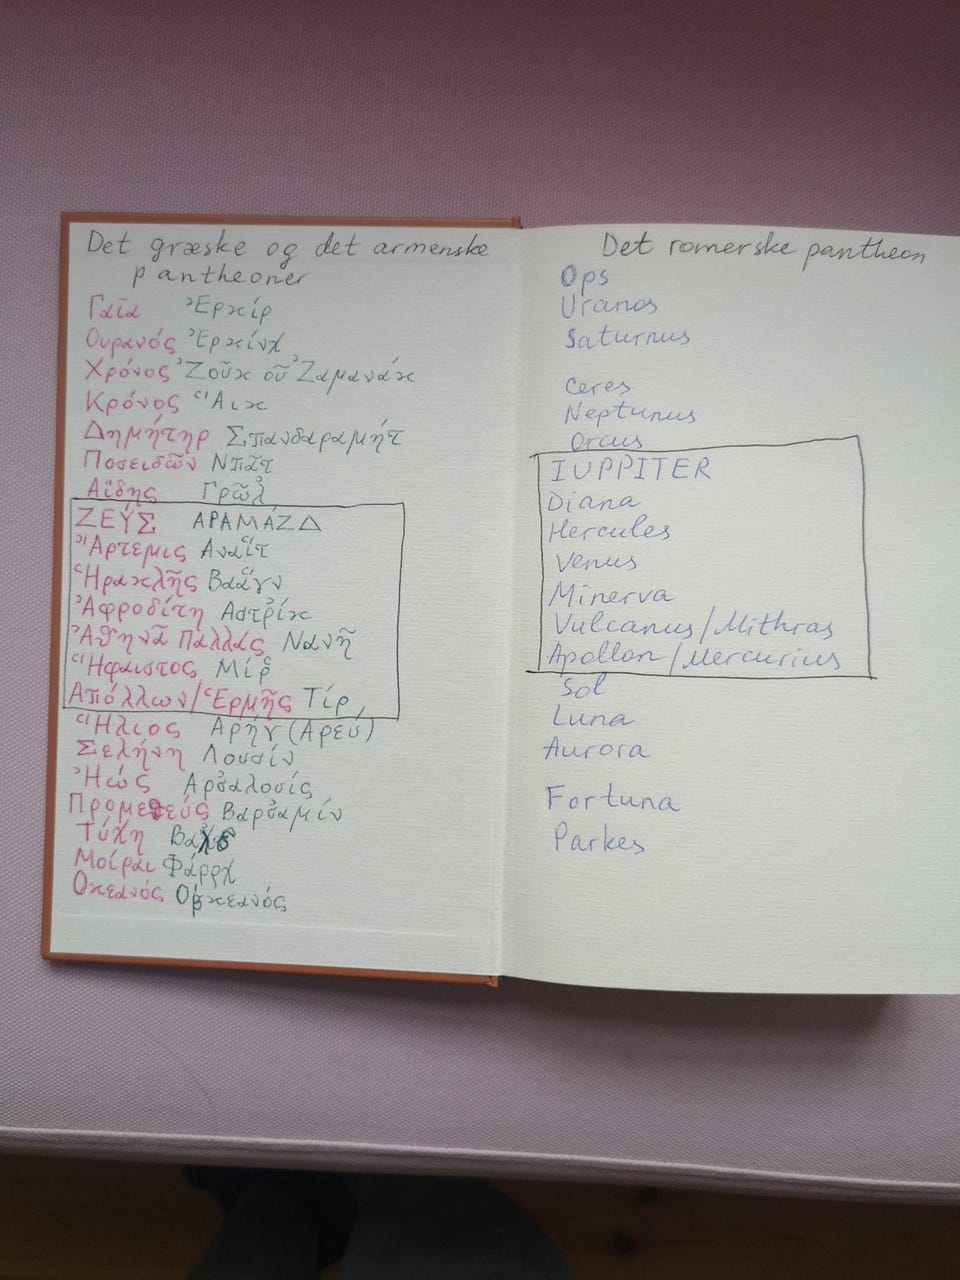 Det græske og det armenske
pantheoner
Γαῖα Ἐρκίρ
Ουρανός Ἐρκίνχ
Χρόνος Ζοῦκ οὒ Ζαμανάκ
Κρόνος Ἅικ
Δημήτηρ Σπανδαραμήτ
Ποσειδῶν Νπᾶτ
Αΐδης
ΖΕΎΣ ΑΡΑΜΆΖΔ
Ἄρτεμις Αναΐτ
Ἡρακλῆς Βαάγν
Ἀφροδίτη Αστρἰκ
Ἀθηνᾶ Παλλάς Νανῆ
Ἥφαιστος Μίρ
Απόλλων/Ἑρμῆς Τίρ
Ἥλιος Αρήγ (Αρεύ)
Σελήνη Λουσίν
Ἠώς Αρσαλουσίς
Προμεθεύς Βαρσαμίν
Τύχη
Μοίραι Φάρρχ
Οκεανός
Det romerske pantheon
Ops
Uranos
Saturnus
Ceres
Neptunus
Orcus
IUPPITER
Diana
Hercules
Venus
Minerva
Vulcanus/Mithras
Apollon/Mercurius
Sol
Luna
Aurora
Fortuna
Parkes